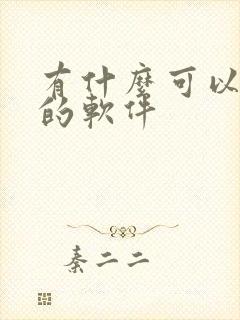 有什麼可以
的軟件
秦二二